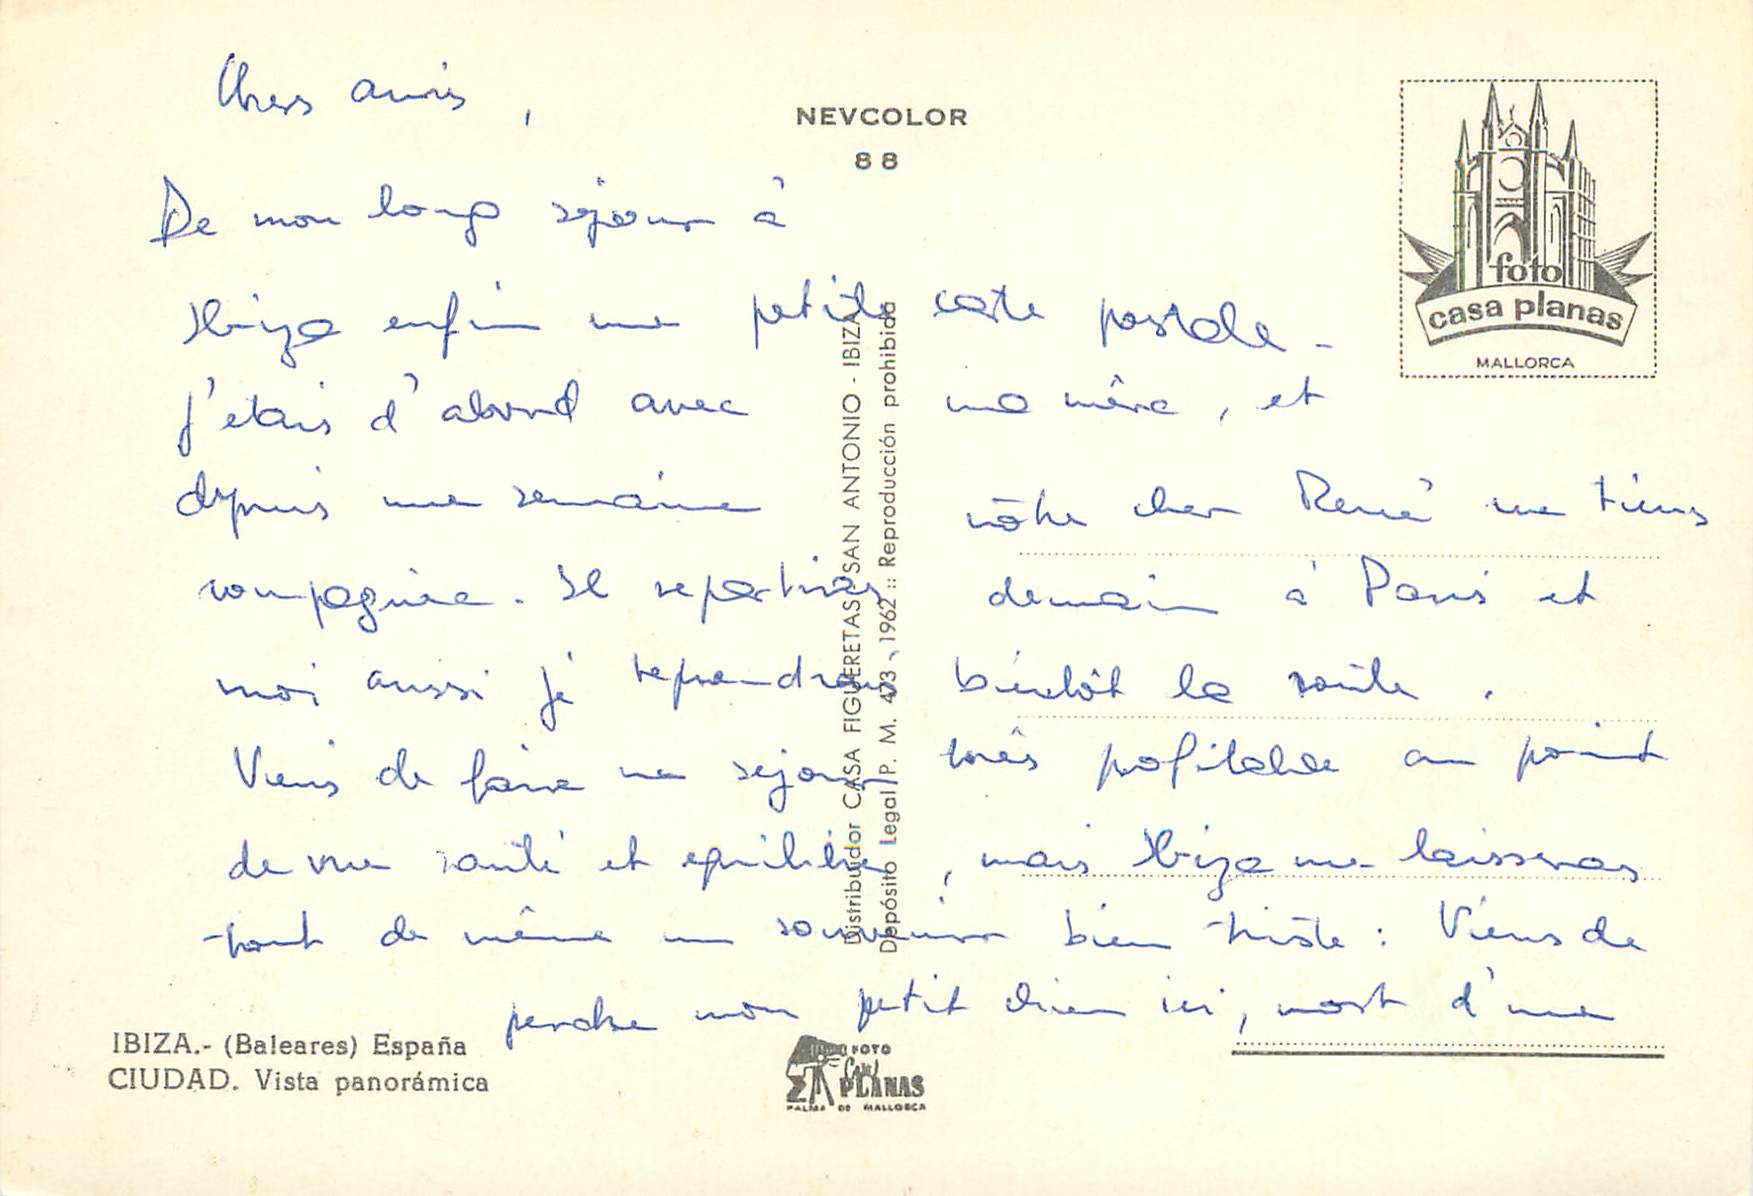 Chers amis,
NEVCOLOR
88
De mon long séjour à
Ibiza enfin une petite carte postale -
J'étais d'abord avec ma mère, et
depuis une semaine nôtre cher René me tiens
compagnie. Il repartiras demain à Paris et
moi aussi je reprendrais bientôt la route.
Viens de faire un sejour très profitable au point
de vue santé et equilibre, mais Ibiza me laisseras
tout de même un souvenir bien triste: Viens de
perdre mon petit chien ici, mort d'une
foto
casa planas
MALLORCA
Distribuidor CASA FIGUERETAS SAN ANTONIO - IBIZA
Depósito Legal P. M. 473 - 1962 :: Reproducción prohibida
IBIZA.- (Baleares) España
CIUDAD. Vista panorámica
FOTO
Casa
PLANAS
PALMA DE MALLORCA